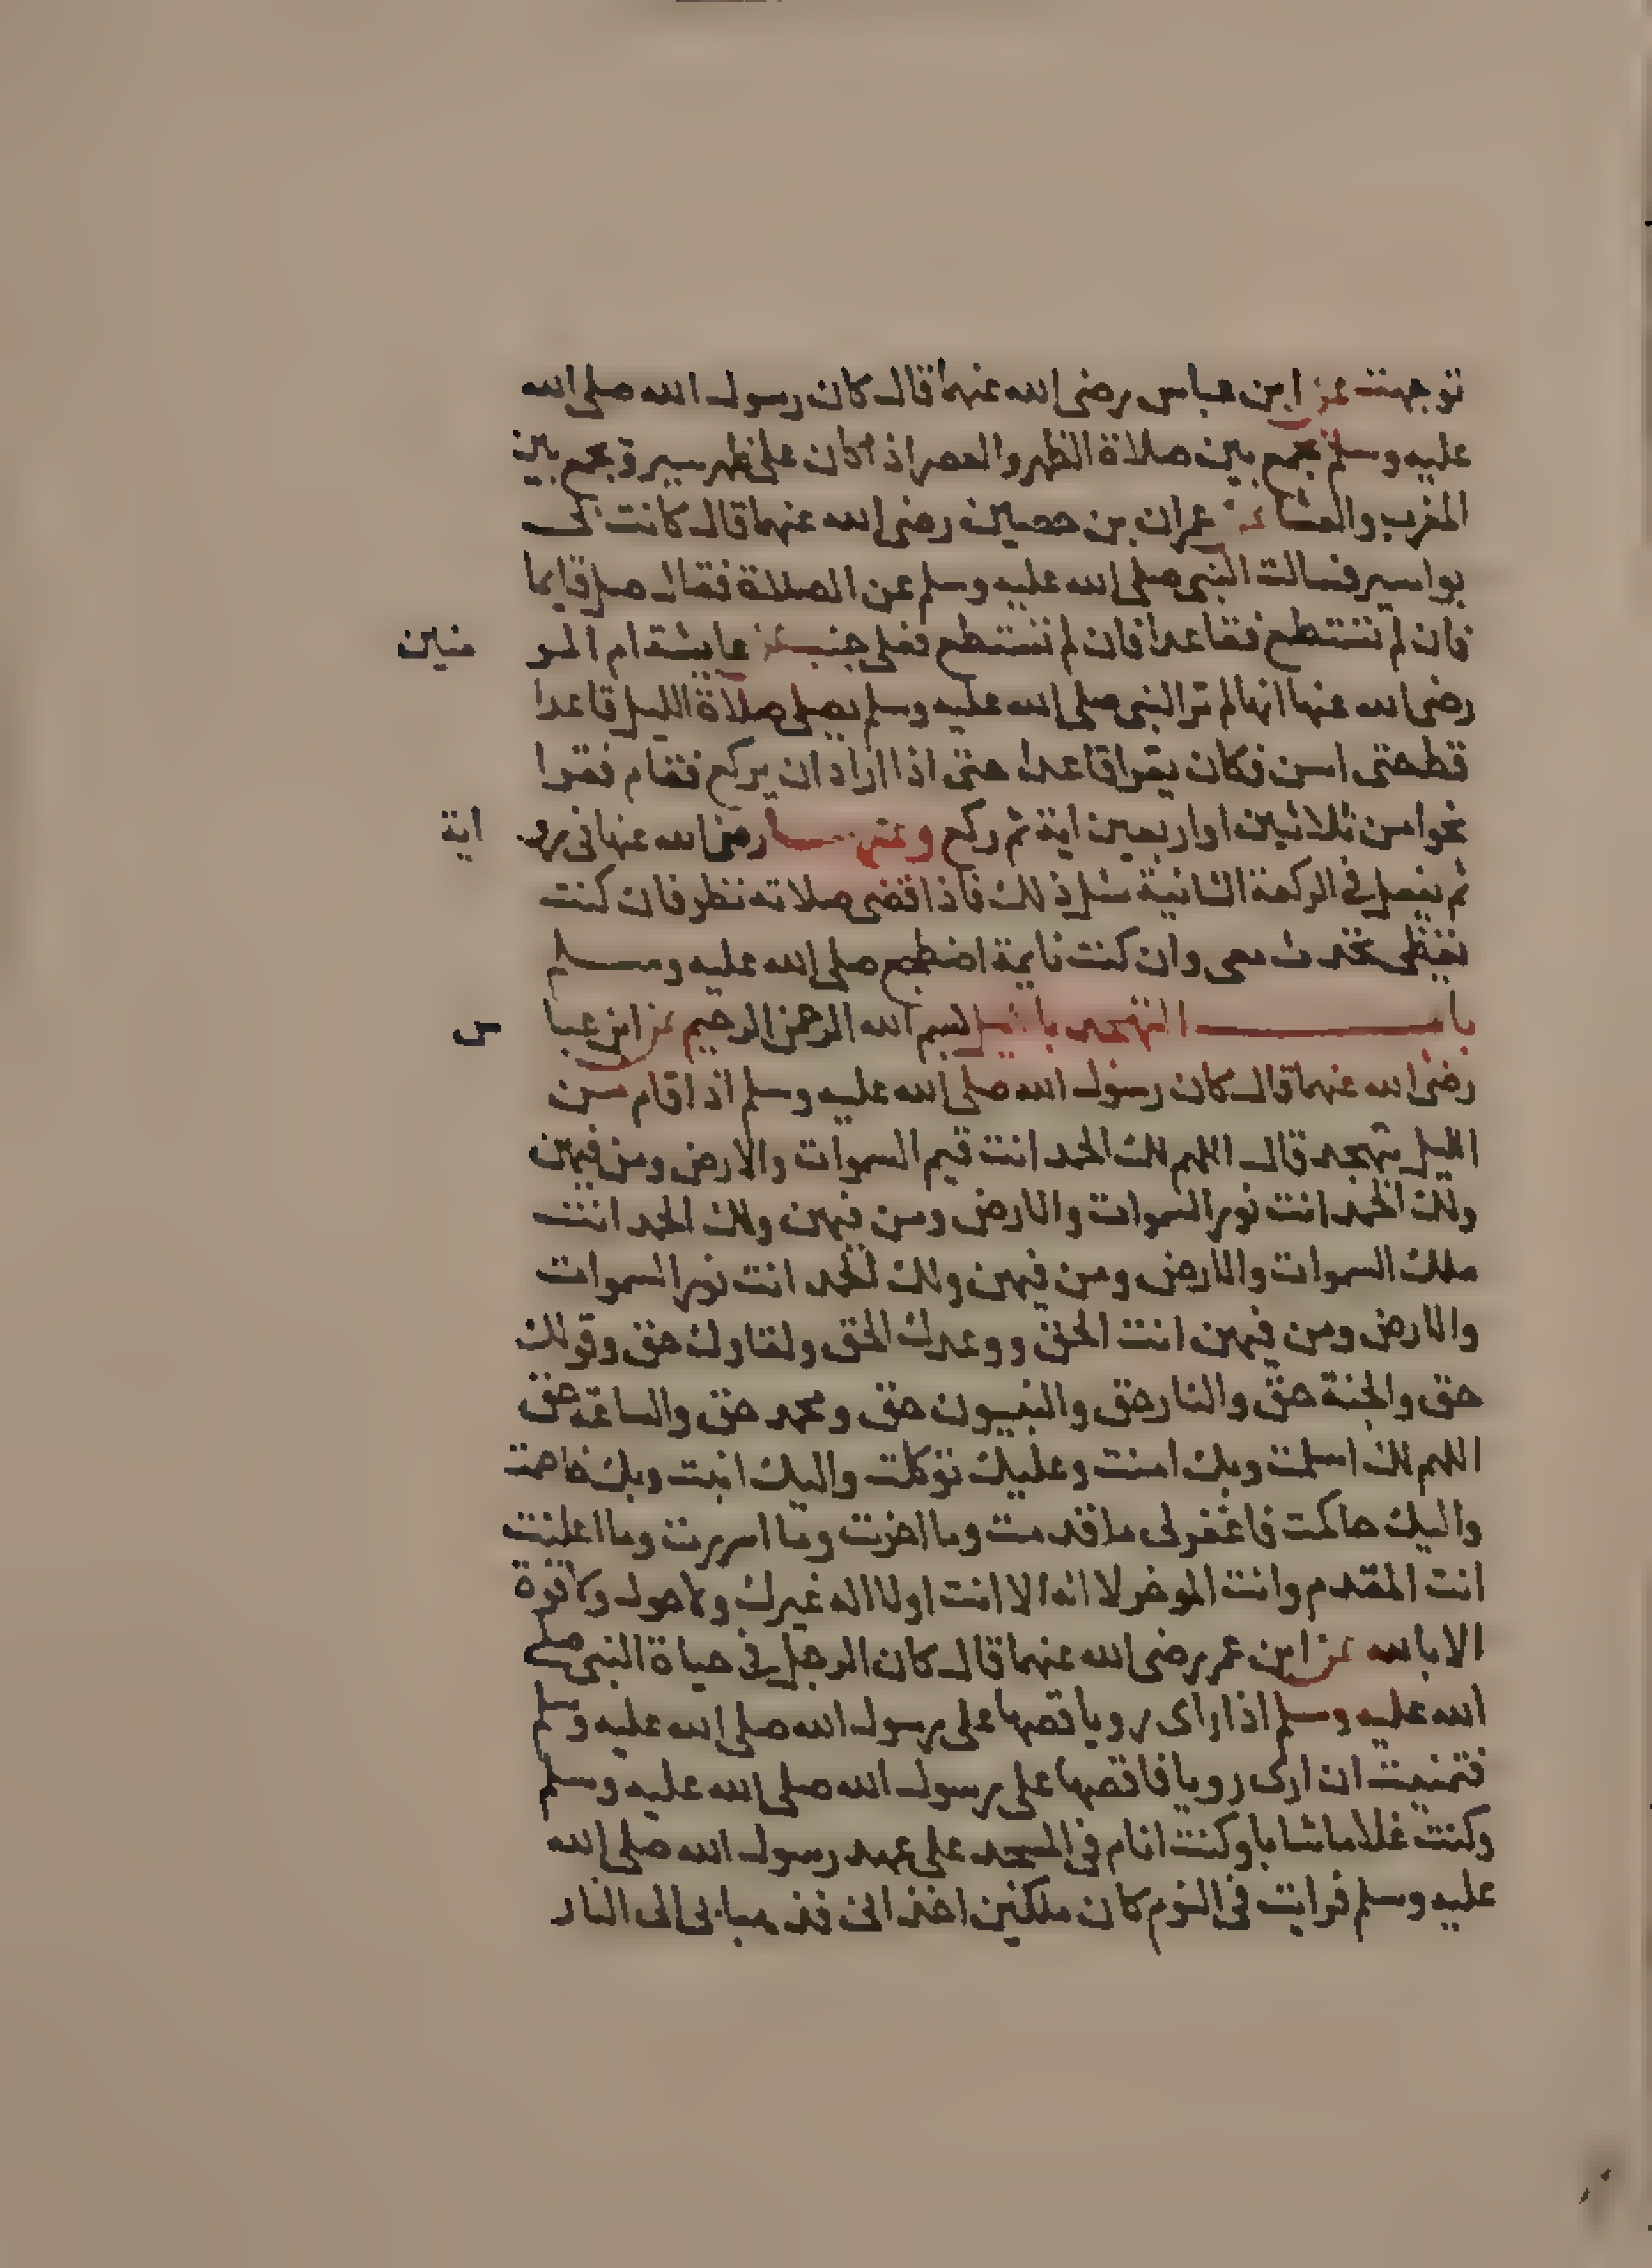 توجهت عن ابن عباس رضى الله عنهما قال كان رسول الله صلى الله
عليه وسلم يجمع بين صلاة الظهر والعصر اذا كان على ظهر سير ويجمع بين
المغرب والعشا عن عمران بن حصين رضى الله عنهما قال كانت لى
بواسير فسالت النبى صلى الله عليه وسلم عن الصلاة فقال صل قايما
فان لم تستطع فقاعدا فان لم تستطع فعلى جنب عن عايشة ام المو منين
رضى الله عنها انها لم تر النبى صلى الله عليه وسلم يصلى صلاة الليل قاعدا
قط حتى اسن فكان يقرا قاعدا حتى اذا اراد ان يركع فقام فقرا
نحوا من ثلاثين او اربعين اية ثم ركع وعنها رضى الله عنها فى اية
ثم يفعل فى الركعة الثانية مثل ذلك فاذا قضى صلاته نظر فان كنت
يقظى تحدث معى وان كنت نايمة اضطجع صلى الله عليه وسلم
باب التهجد بالليل بسم الله الرحمن الرحيم عن ابن عبا س
رضى الله عنهما قال كان رسول الله صلى الله عليه وسلم اذا قام من
الليل يتهجد قال اللهم لك الحمد انت قيم السموات والارض ومن فيهن
ولك الحمد انت نور السموات والارض ومن فيهن ولك الحمد انت
ملك السموات والارض ومن فيهن ولك الحمد انت نور السموات
والارض ومن فيهن انت الحق ووعدك الحق ولقاوك حق وقولك
حق والجنة حق والنار حق والنبيون حق ومحمد حق والساعة حق
اللهم لك اسلمت وبك امنت وعليك توكلت واليك انبت وبك خاصمت
واليك حاكمت فاغفرلى ما قدمت وما اخرت وما اسررت وما اعلنت
انت المقدم وانت الموخر لا اله الا انت اولا اله غيرك ولا حول ولا قوة
الا بالله عن ابن عمر رضى الله عنهما قال كان الرجل فى حياة النبى صلى
الله عليه وسلم اذا راى رويا قصها على رسول الله صلى الله عليه وسلم
فتمنيت ان ارى رويا فاقصها على رسول الله صلى الله عليه وسلم
وكنت غلاما شابا وكنت انام فى المسجد على عهد رسول الله صلى الله
عليه وسلم فرايت فى النوم كان ملكين اخذانى فذهبا بى الى النار